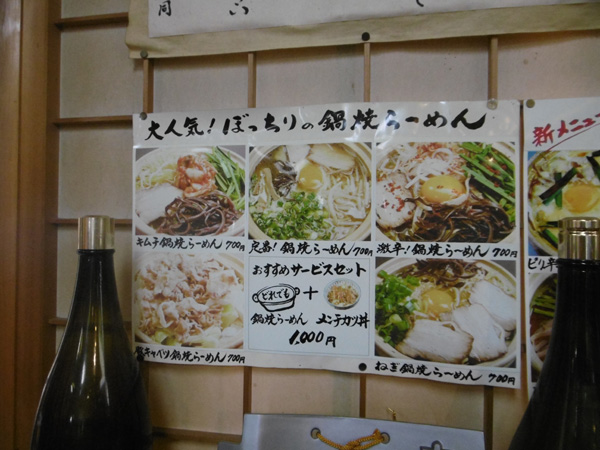 同
大人気!ぼっちりの鍋焼らーめん
新メニュー
キムチ鍋焼らーめん 700円
定番!鍋焼らーめん 700円
激辛!鍋焼らーめん 700円
ピリ辛
おすすめサービスセット
どれでも
+
鍋焼らーめん メンチカツ丼
1,000円
キャベツ鍋焼らーめん 700円
ねぎ鍋焼らーめん 700円